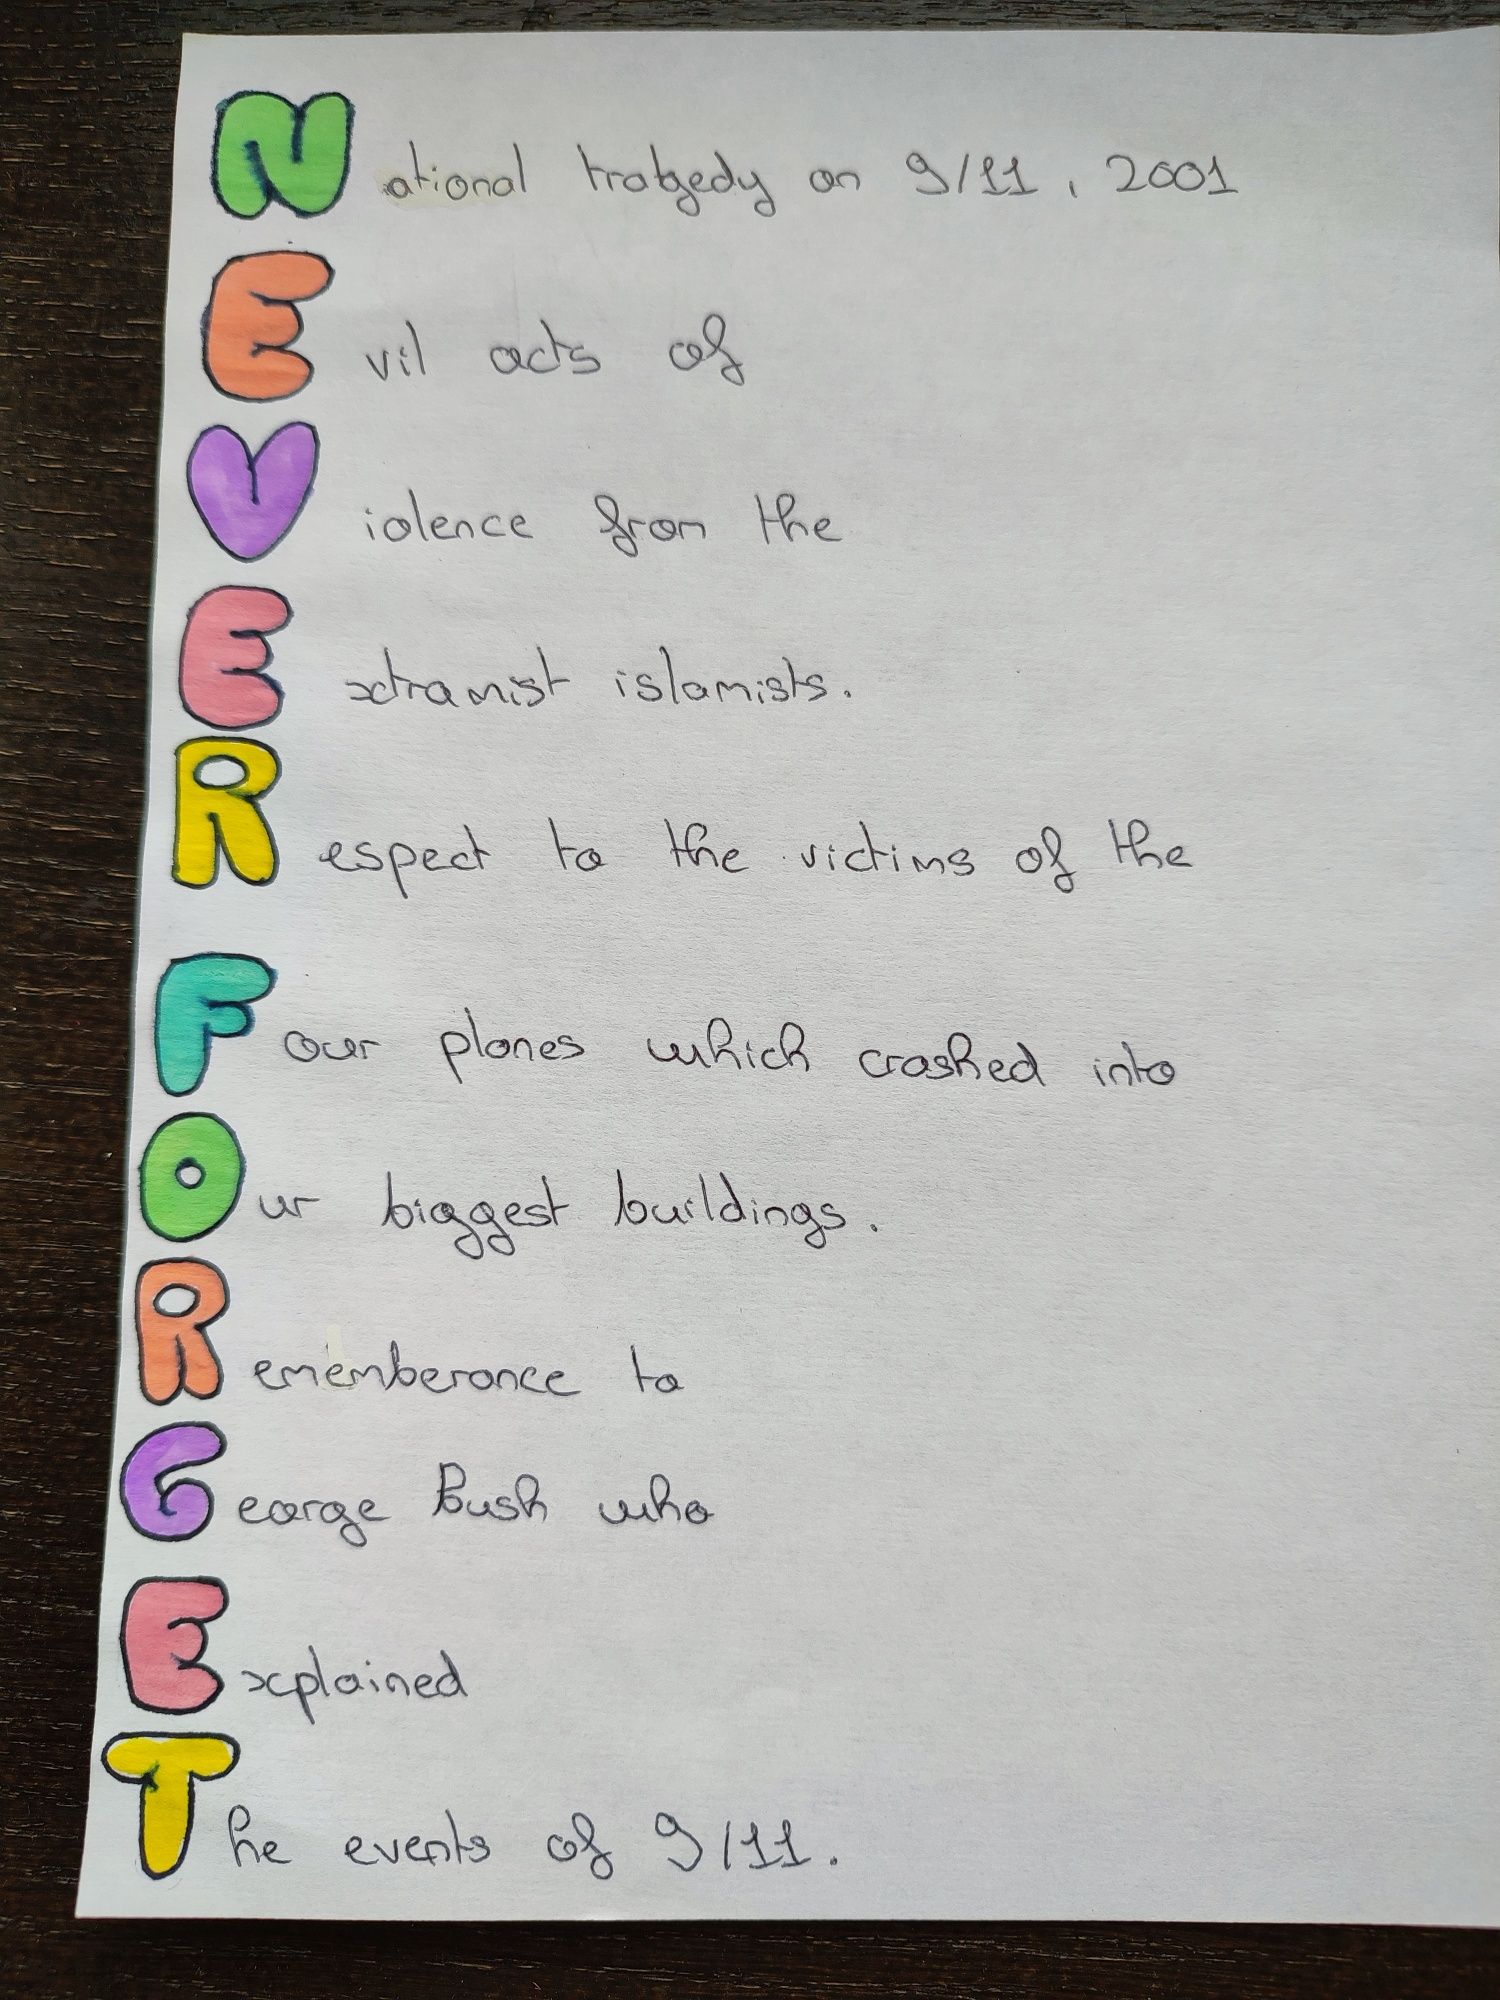 National tratgedy on 9/11, 2001
Evil acts of
Violence from the
Extramist islamists.
Respect to the victims of the
Four planes which crashed into
Our biggest buildings.
Rememberance to
George Bush who
Explained
The events of 9/11.